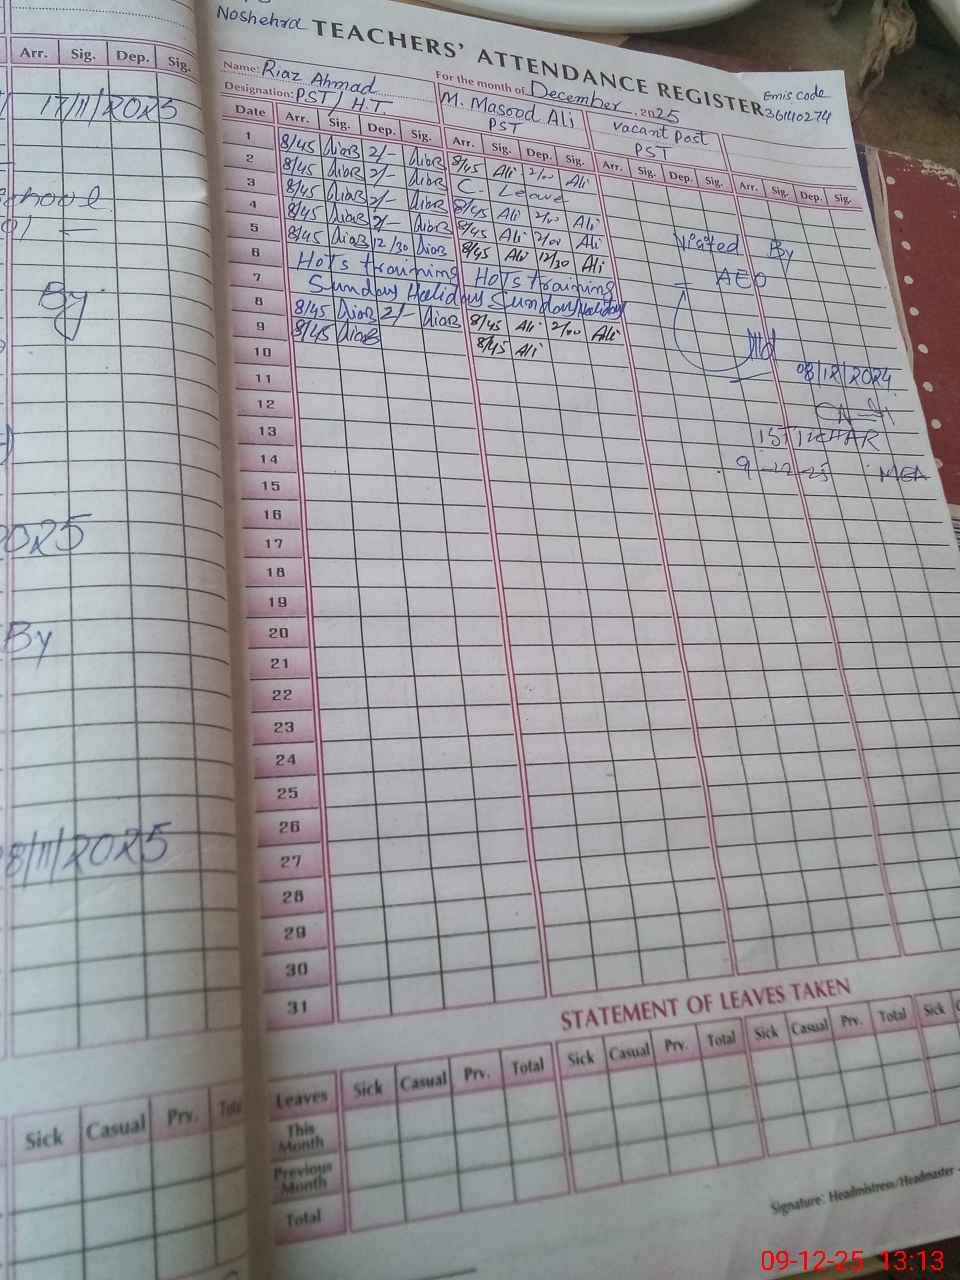 Noshehra TEACHERS' ATTENDANCE REGISTER
Name: Riaz Ahmad For the month of December, 2025 Emis code
Designation: PST / H.T. M. Masood Ali Vacant Post 36140274
PST PST
Date Arr. Sig. Dep. Sig. Arr. Sig. Dep. Sig. Arr. Sig. Dep. Sig. Arr. Sig. Dep. Sig.
1 8/45 2/- 8/45 Ali 2/00 Ali
2 8/45 2/- C. Leave
3 8/45 2/- 8/45 Ali 2/00 Ali
4 8/45 2/- 8/45 Ali 2/00 Ali
5 8/45 12/30 8/45 Ali 12/30 Ali
6 HoTs training HoTs training
7 Sunday Holiday Sunday Holiday
8 8/45 2/- 8/45 Ali 2/00 Ali
9 8/45 8/45 Ali
10
11
12
13
14
15
16
17
18
19
20
21
22
23
24
25
26
27
28
29
30
31
Visited By
AEO
08/12/2024
9-12-25 MEA
STATEMENT OF LEAVES TAKEN
Leaves Sick Casual Prv. Total Sick Casual Prv. Total Sick Casual Prv. Total Sick
This Month
Previous Month
Total
Signature: Headmistress/Headmaster
Arr. Sig. Dep. Sig.
17/11/2025
By
2025
By
8/11/2025
Sick Casual Prv.
09-12-25 13:13